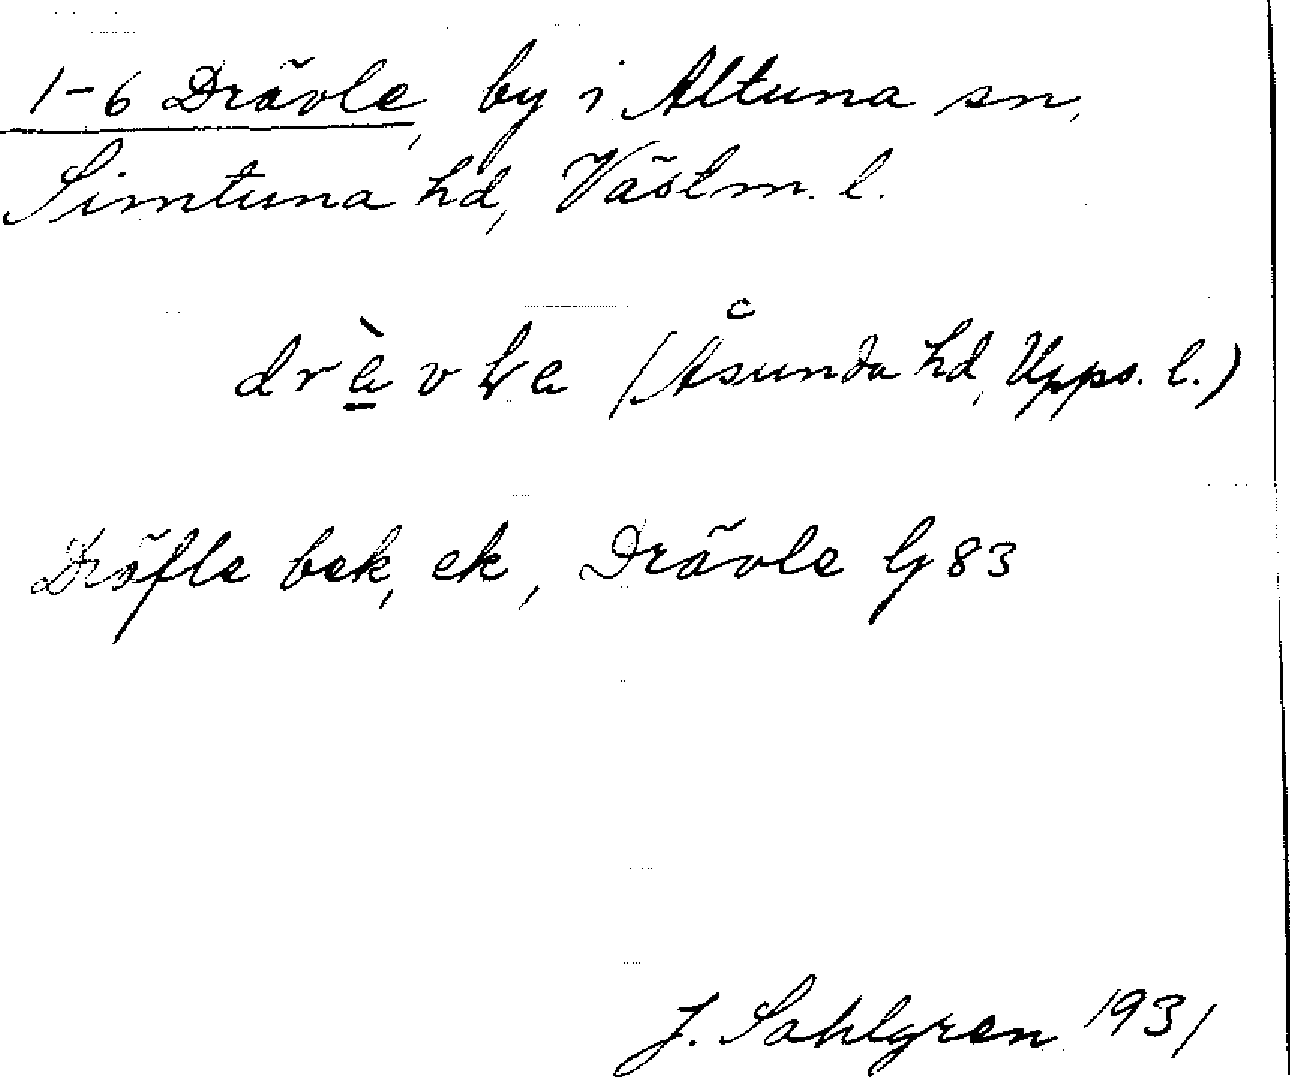 1-6 Drävle, by i Altuna sn,
Simtuna hd, Västm. l.
(Åsunda hd, Upps. l.)
Dräfle bek, ek, Drävle Gj 83
J. Sahlgren 1931